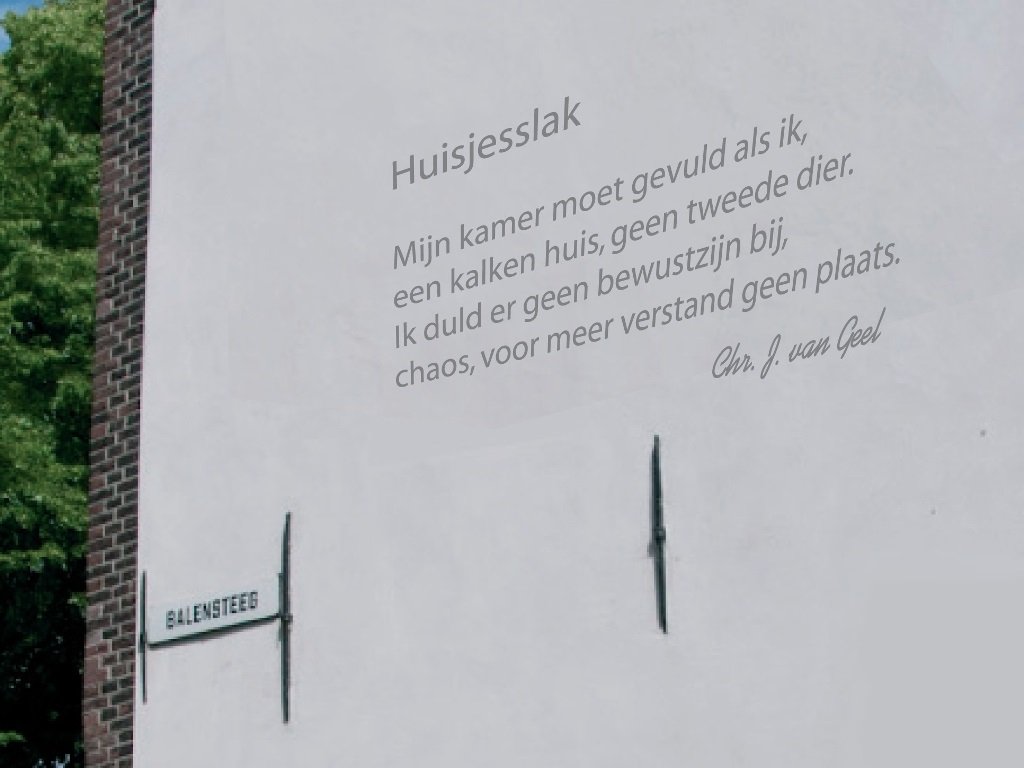 Huisjesslak
Mijn kamer moet gevuld als ik,
een kalken huis, geen tweede dier.
Ik duld er geen bewustzijn bij,
chaos, voor meer verstand geen plaats.
Chr. J. van Geel
BALENSTEEG